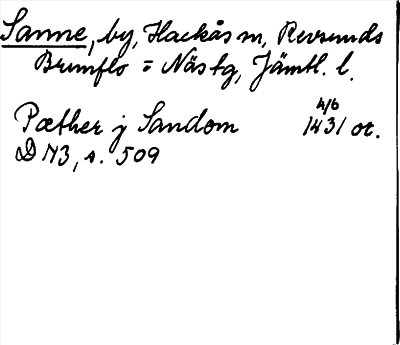 Sanne, by, Hackås sn, Revsunds
Brunflo = Näs tg, Jämtl. l.
4/6
Pæther j Sandom 1431 or.
DN3, s. 509